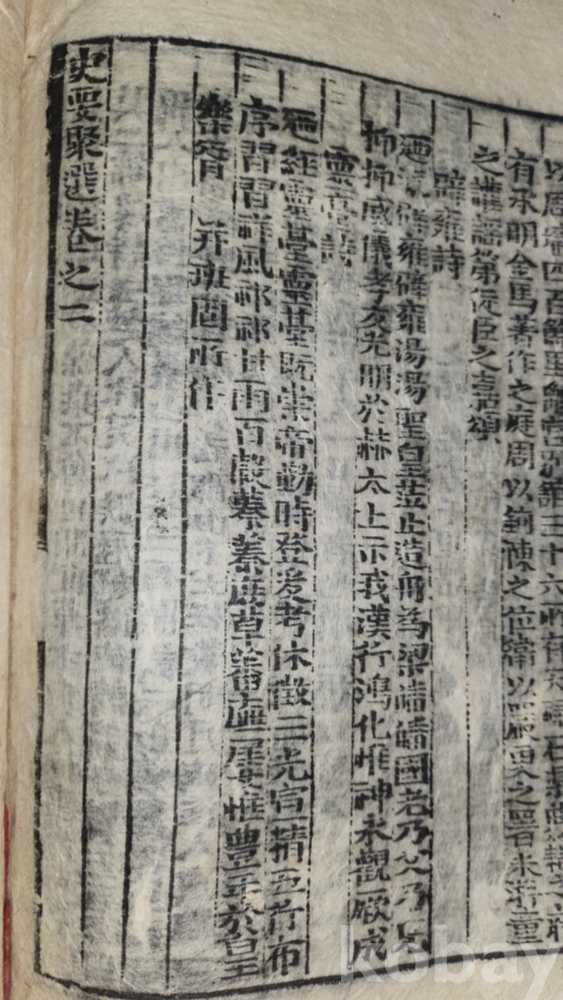 四百餘里離宮別館三十六所有天祿石渠典
有承明金馬著作之庭周以鉤陳之位衛以嚴更之署采遊童
之讙謠第從臣之嘉頌
辟雍詩
迺流辟雍辟雍湯湯聖皇莅止造舟為梁皤皤國老乃父乃兄
抑抑威儀孝友光明於赫太上示我漢行鴻化惟神永觀厥成
靈臺詩
迺經靈臺靈臺旣崇帝勤時登爰考休徵三光宣精五行布
序習習祥風祁祁甘雨百穀蓁蓁庶草蕃廡屢惟豊年於皇
樂胥 并班固所作
史要聚選卷之二
kobay